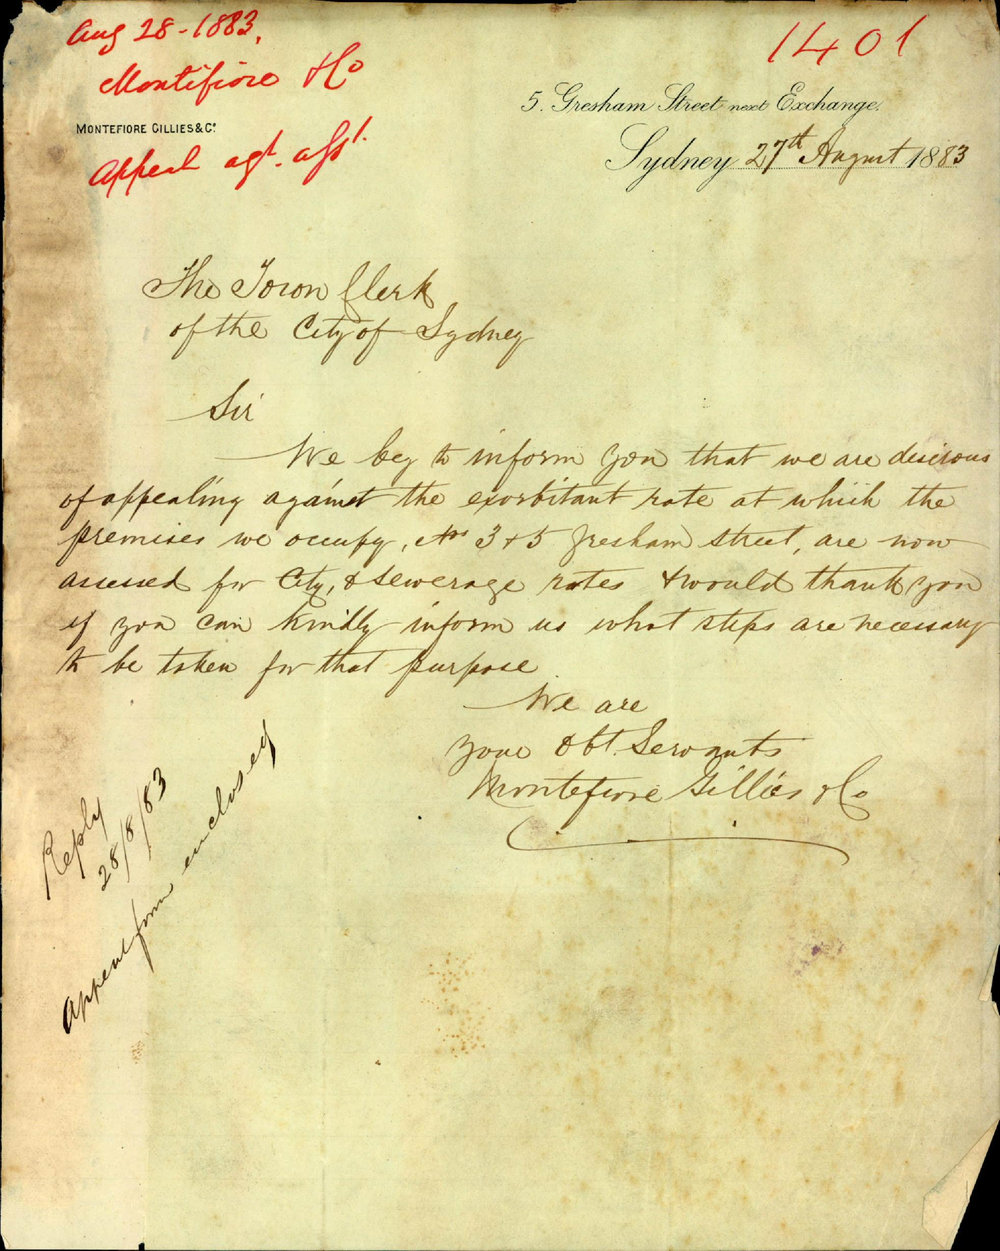 Aug 28-1883,
Montifiore & Co
MONTEFIORE GILLIES & Co.
Appeal agt. asst.
1401
5. Gresham Street next Exchange.
Sydney 27th August 1883
The Town Clerk
of the City of Sydney
Sir
We beg to inform you that we are desirous
of appealing against the exorbitant rate at which the
premises we occupy, Nos 3 & 5 Gresham Street, are now
assessed for City, & Sewerage rates & would thank you
if you can kindly inform us what steps are necessary
to be taken for that purpose
We are
your obt. Servants
Montefiore Gillies & Co
Reply
28/8/83
Appeal form enclosed